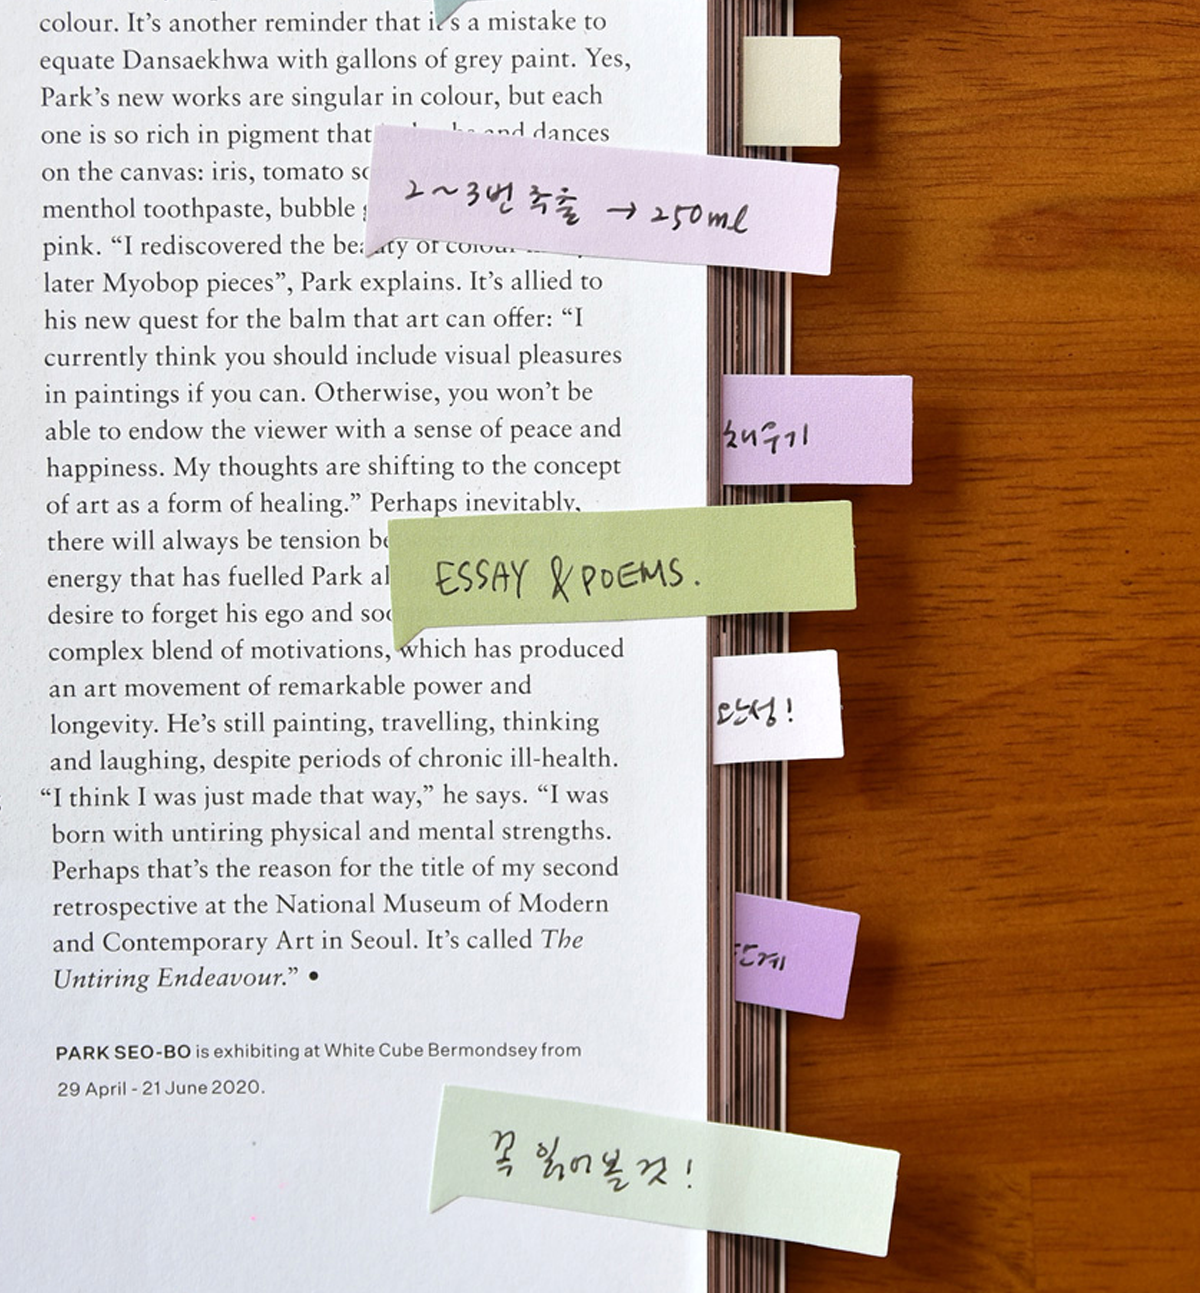 colour. It's another reminder that it's a mistake to
equate Dansaekhwa with gallons of grey paint. Yes,
Park's new works are singular in colour, but each
one is so rich in pigment that and dances
on the canvas: iris, tomato
menthol toothpaste, bubble
pink. “I rediscovered the beauty of colour
later Myobop pieces”, Park explains. It's allied to
his new quest for the balm that art can offer: “I
currently think you should include visual pleasures
in paintings if you can. Otherwise, you won't be
able to endow the viewer with a sense of peace and
happiness. My thoughts are shifting to the concept
of art as a form of healing.” Perhaps inevitably,
there will always be tension
energy that has fuelled Park
desire to forget his ego and
complex blend of motivations, which has produced
an art movement of remarkable power and
longevity. He's still painting, travelling, thinking
and laughing, despite periods of chronic ill-health.
“I think I was just made that way,” he says. “I was
born with untiring physical and mental strengths.
Perhaps that's the reason for the title of my second
retrospective at the National Museum of Modern
and Contemporary Art in Seoul. It's called The
Untiring Endeavour.” •
PARK SEO-BO is exhibiting at White Cube Bermondsey from
29 April - 21 June 2020.
2~3번 추출 → 250ml
채우기
ESSAY & POEMS.
완성!
꼭 읽어볼 것!